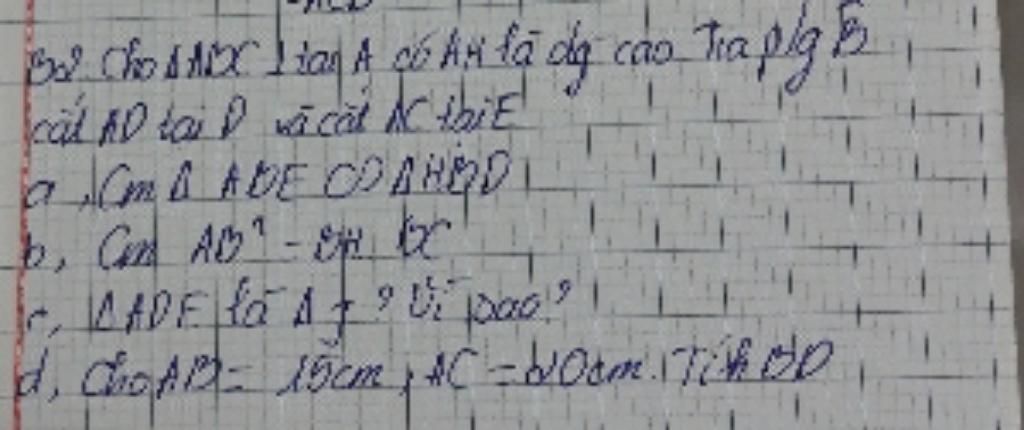 B2. Cho ΔABC ⊥ tại A có AH là đg cao Tia p/g B
cắt AD tại D và cắt AC tại E
a, Cm Δ ABE ∽ ΔHBD
b, Cm AB² = BH BC
c, ΔADE là Δ j ? Vì sao?
d, Cho AB = 15cm, AC = 20cm. Tính BD